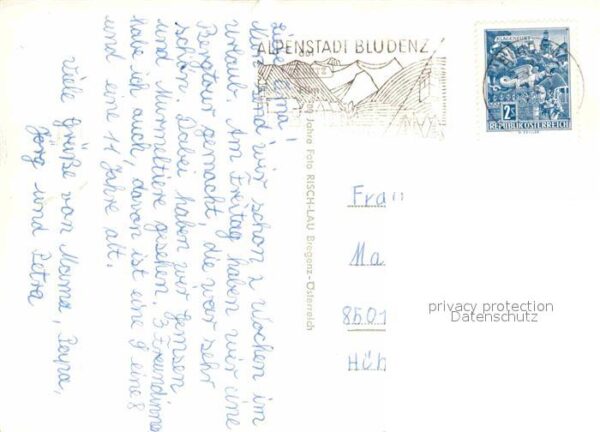 Liebe Oma!
Nun sind wir schon 2 Wochen im
Urlaub. Am Freitag haben wir eine
Bergtour gemacht, die war sehr
schön. Dabei haben wir Gemsen
und Murmeltiere gesehen. 3 Freundinnen
habe ich auch, davon ist eine 9 eine 8
und eine 11 Jahre alt.
Viele Grüße von Mama, Papa,
Jörg und Petra
ALPENSTADT BLUDENZ
Jahre Foto RISCH-LAU Bregenz-Österreich
KLAGENFURT
2S
REPUBLIK ÖSTERREICH
Frau
Ma
8501
privacy protection
Datenschutz